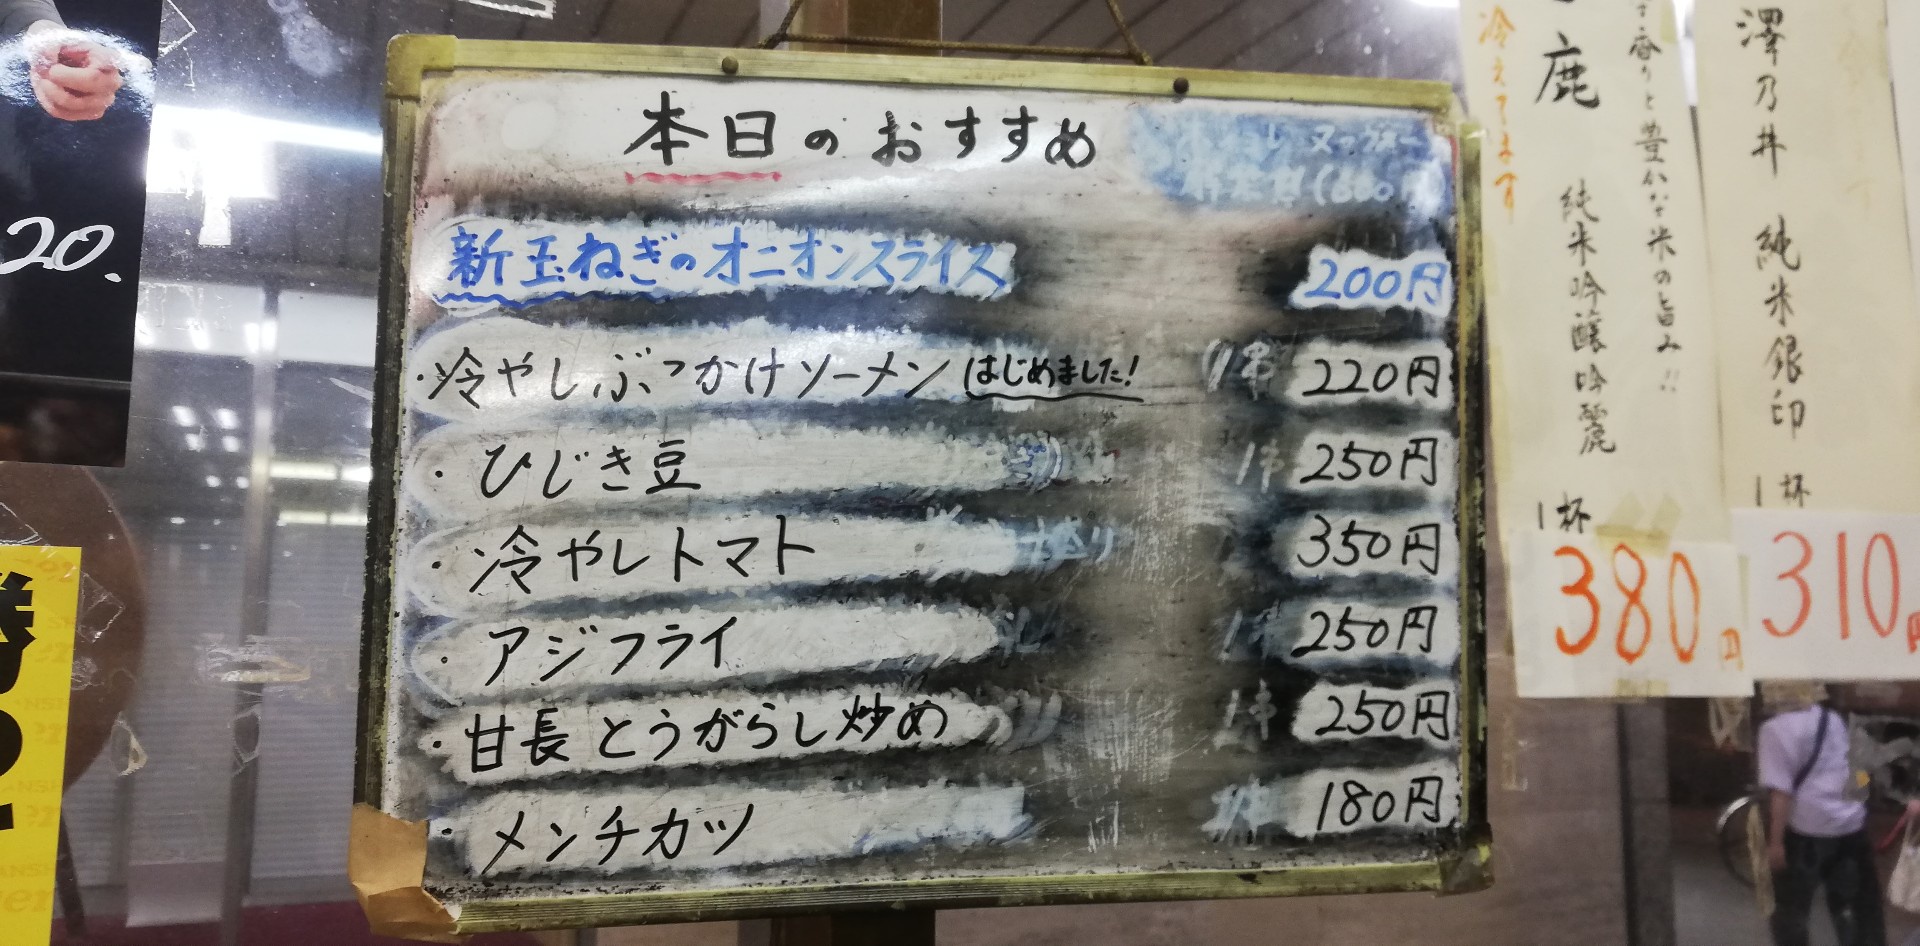 本日のおすすめ
新玉ねぎのオニオンスライス 200円
・冷やしぶっかけソーメン はじめました! 220円
・ひじき豆 250円
・冷やしトマト 350円
・アジフライ 250円
・甘長とうがらし炒め 250円
・メンチカツ 180円
20.
冷えてます
鹿 純米吟醸吟麗
香りと豊かな米の旨み!!
1杯
380円
澤乃井 純米銀印
1杯
310円